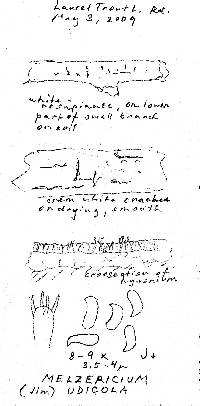 Laurel Trout L. Rd.
May 3, 2009
white
resupinate, on lower
part of small branch
on soil
cream white cracked
on drying, smooth
crosssection of
hymenium
8-9 x
3.5-4μ
J+
MELZERICIUM
(Jim) UDICOLA